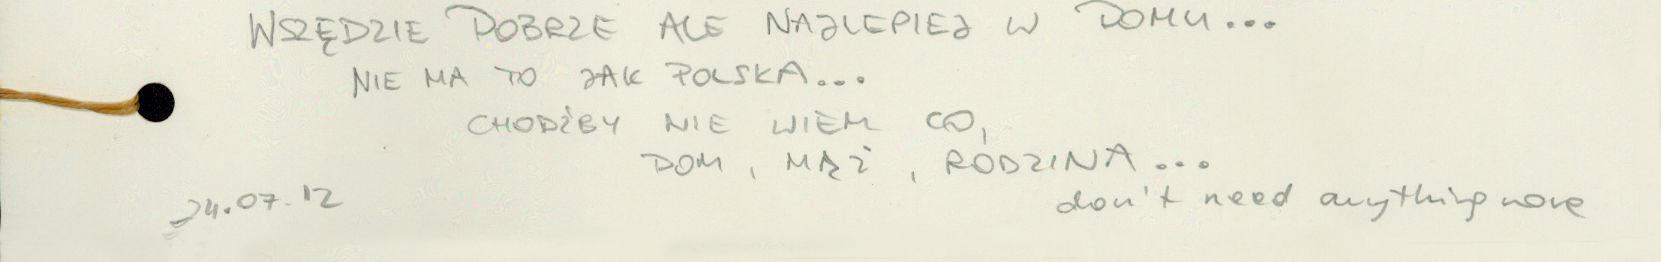 WSZĘDZIE DOBRZE ALE NAJLEPIEJ W DOMU...
NIE MA TO JAK POLSKA...
CHODŹBY NIE WIEM CO,
DOM, MĄŻ, RODZINA...
24.07.12
don't need anything more